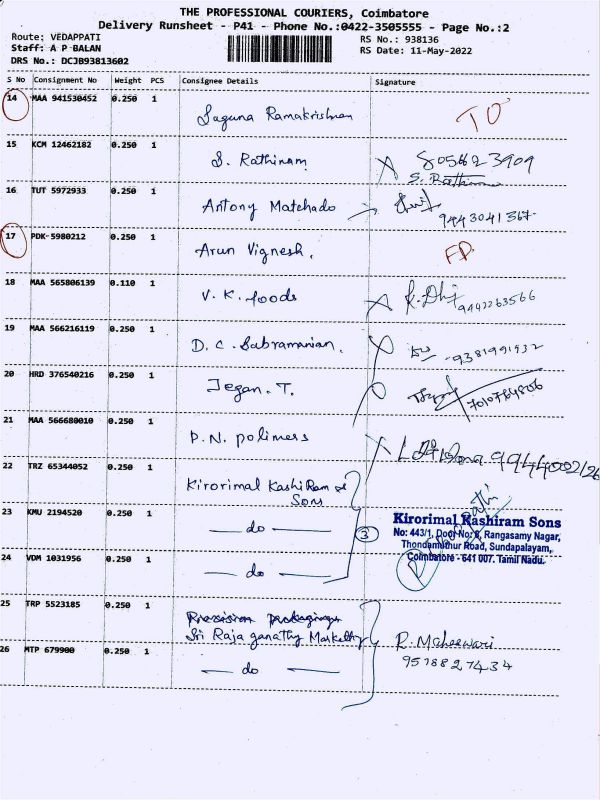 THE PROFESSIONAL COURIERS, Coimbatore
Delivery Runsheet - P41 - Phone No.:0422-3505555 - Page No.:2
Route: VEDAPPATI
Staff: A P BALAN
DRS No.: DCJB93813602
RS No.: 938136
RS Date: 11-May-2022
S No Consignment No Weight PCS Consignee Details Signature
14 MAA 941530452 0.250 1 Saguna Ramakrishnan TO
15 KCM 12462182 0.250 1 S. Rathinam 8056623909
S. Rathinam
16 TUT 5972933 0.250 1 Antony Matchado
9443041367
17 PDK 5980212 0.250 1 Arun Vignesh. FD.
18 MAA 565806139 0.110 1 V. K. foods 9442263566
19 MAA 566216119 0.250 1 D. C. Sabramanian. 9381991932
20 HRD 376540216 0.250 1 Jegan. T. 7010784806
21 MAA 566680010 0.250 1 P.N. polimers
22 TRZ 65344052 0.250 1 Kirorimal KashiRam &
Sons
23 KMU 2194520 0.250 1 — do — 3
Kirorimal Kashiram Sons
No: 443/1, Door No: 8, Rangasamy Nagar,
Thondamuthur Road, Sundapalayam,
Coimbatore - 641 007. Tamil Nadu.
24 VDM 1031956 0.250 1 — do —
25 TRP 5523185 0.250 1 Precision packagings
Sri Raja ganathy R. Maheswari
9578827434
26 MTP 679900 0.250 1 — do —